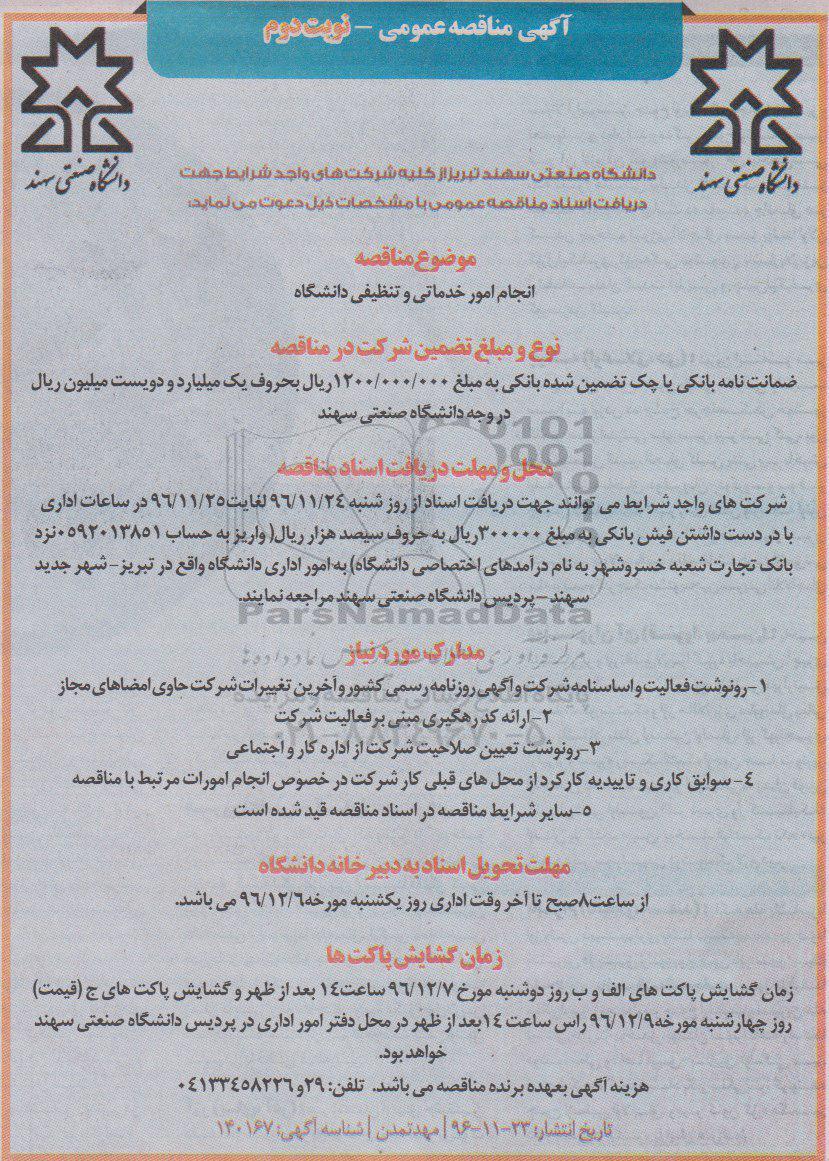 آگهی مناقصه عمومی – نوبت دوم
دانشگاه صنعتی سهند
دانشگاه صنعتی سهند
دانشگاه صنعتی سهند تبریز از کلیه شرکت های واجد شرایط جهت
دریافت اسناد مناقصه عمومی با مشخصات ذیل دعوت می نماید:
موضوع مناقصه
انجام امور خدماتی و تنظیفی دانشگاه
نوع و مبلغ تضمین شرکت در مناقصه
ضمانت نامه بانکی یا چک تضمین شده بانکی به مبلغ ۱۲۰۰/۰۰۰/۰۰۰ریال بحروف یک میلیارد و دویست میلیون ریال
در وجه دانشگاه صنعتی سهند
محل و مهلت دریافت اسناد مناقصه
شرکت های واجد شرایط می توانند جهت دریافت اسناد از روز شنبه ۹۶/۱۱/۲۴ لغایت۹۶/۱۱/۲۵ در ساعات اداری
با در دست داشتن فیش بانکی به مبلغ ۳۰۰۰۰۰ریال به حروف سیصد هزار ریال( واریز به حساب ۰۵۹۲۰۱۳۸۵۱نزد
بانک تجارت شعبه خسروشهر به نام درآمدهای اختصاصی دانشگاه) به امور اداری دانشگاه واقع در تبریز- شهر جدید
سهند – پردیس دانشگاه صنعتی سهند مراجعه نمایند.
ParsNamadData
مدارک مورد نیاز
۱-رونوشت فعالیت و اساسنامه شرکت و آگهی روزنامه رسمی کشور و آخرین تغییرات شرکت حاوی امضاهای مجاز
۲-ارائه کد رهگیری مبنی بر فعالیت شرکت
۰۲۱-۸۸۳۴۹۶۷۰-۵
۳-رونوشت تعیین صلاحیت شرکت از اداره کار و اجتماعی
۴- سوابق کاری و تاییدیه کارکرد از محل های قبلی کار شرکت در خصوص انجام امورات مرتبط با مناقصه
۵-سایر شرایط مناقصه در اسناد مناقصه قید شده است
مهلت تحویل اسناد به دبیرخانه دانشگاه
از ساعت۸صبح تا آخر وقت اداری روز یکشنبه مورخه۹۶/۱۲/۶ می باشد.
زمان گشایش پاکت ها
زمان گشایش پاکت های الف و ب روز دوشنبه مورخ ۹۶/۱۲/۷ ساعت۱۴ بعد از ظهر و گشایش پاکت های ج (قیمت)
روز چهارشنبه مورخه۹۶/۱۲/۹ راس ساعت ۱۴بعد از ظهر در محل دفتر امور اداری در پردیس دانشگاه صنعتی سهند
خواهد بود.
هزینه آگهی بعهده برنده مناقصه می باشد. تلفن: ۲۹و ۰۴۱۳۳۴۵۸۲۲۶
تاریخ انتشار: ۲۳-۱۱-۹۶ | مهدتمدن | شناسه آگهی: ۱۴۰۱۶۷